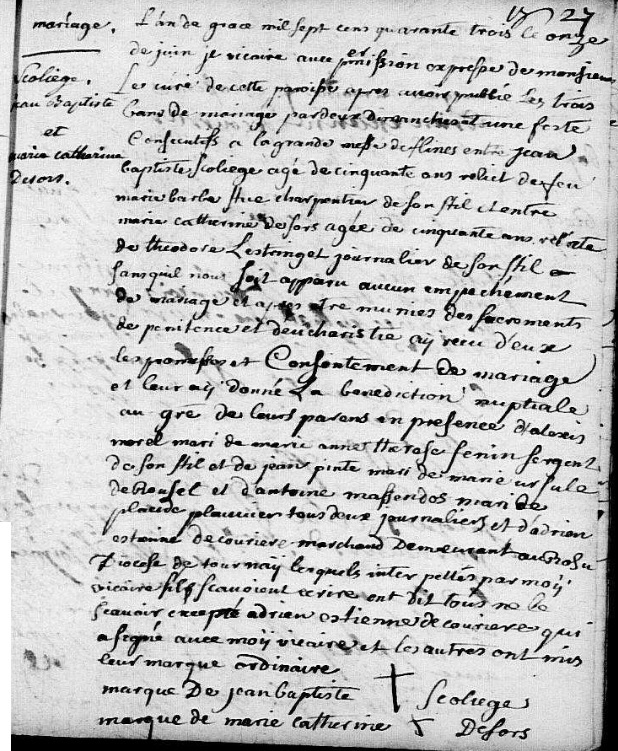 17 27
mariage.
Scoliege.
jean Baptiste
et
marie catharine
Desors.
L'an de grace mil sept cens quarante trois le onze
de juin je vicaire avec permission expresse de monsieur
Le curé de cette paroisse apres avoir publié les trois
bans de mariage par deux dimanches et une feste
Consecutifs a la grande messe de flines entre jean
baptiste Scoliege agé de cinquante ans relict de feu
marie barbe hue charpentier de son stil et entre
marie catherine desors agée de cinquante ans relicte
de theodore Lestringet journalier de son stil
sans qu'il nous soit apparu aucun empechement
de mariage et apres etre munies des sacrements
de penitence et d'eucharistie aÿ recu d'eux
les promesses et Consentement de mariage
et leur aÿ donné La benediction nuptiale
au gré de leurs parens en presence d'alexis
morel mari de marie anne therese fenin sergent
de son stil et de jean pinte mari de marie ursule
debousel et d'antoine massendos mari de
placide plauvier tous deux journaliers et d'adrien
estienne decouriere marchand Demeurant au
Diocese de tournaÿ lesquels interpellés par moÿ
vicaire s'ils scavoient ecrire ont dit tous ne le
scavoir excepté adrien estienne decouriere qui
a signé avec moÿ vicaire et les autres ont mis
leur marque ordinaire
marque De jean baptiste Scoliege
marque de marie catherine Desors